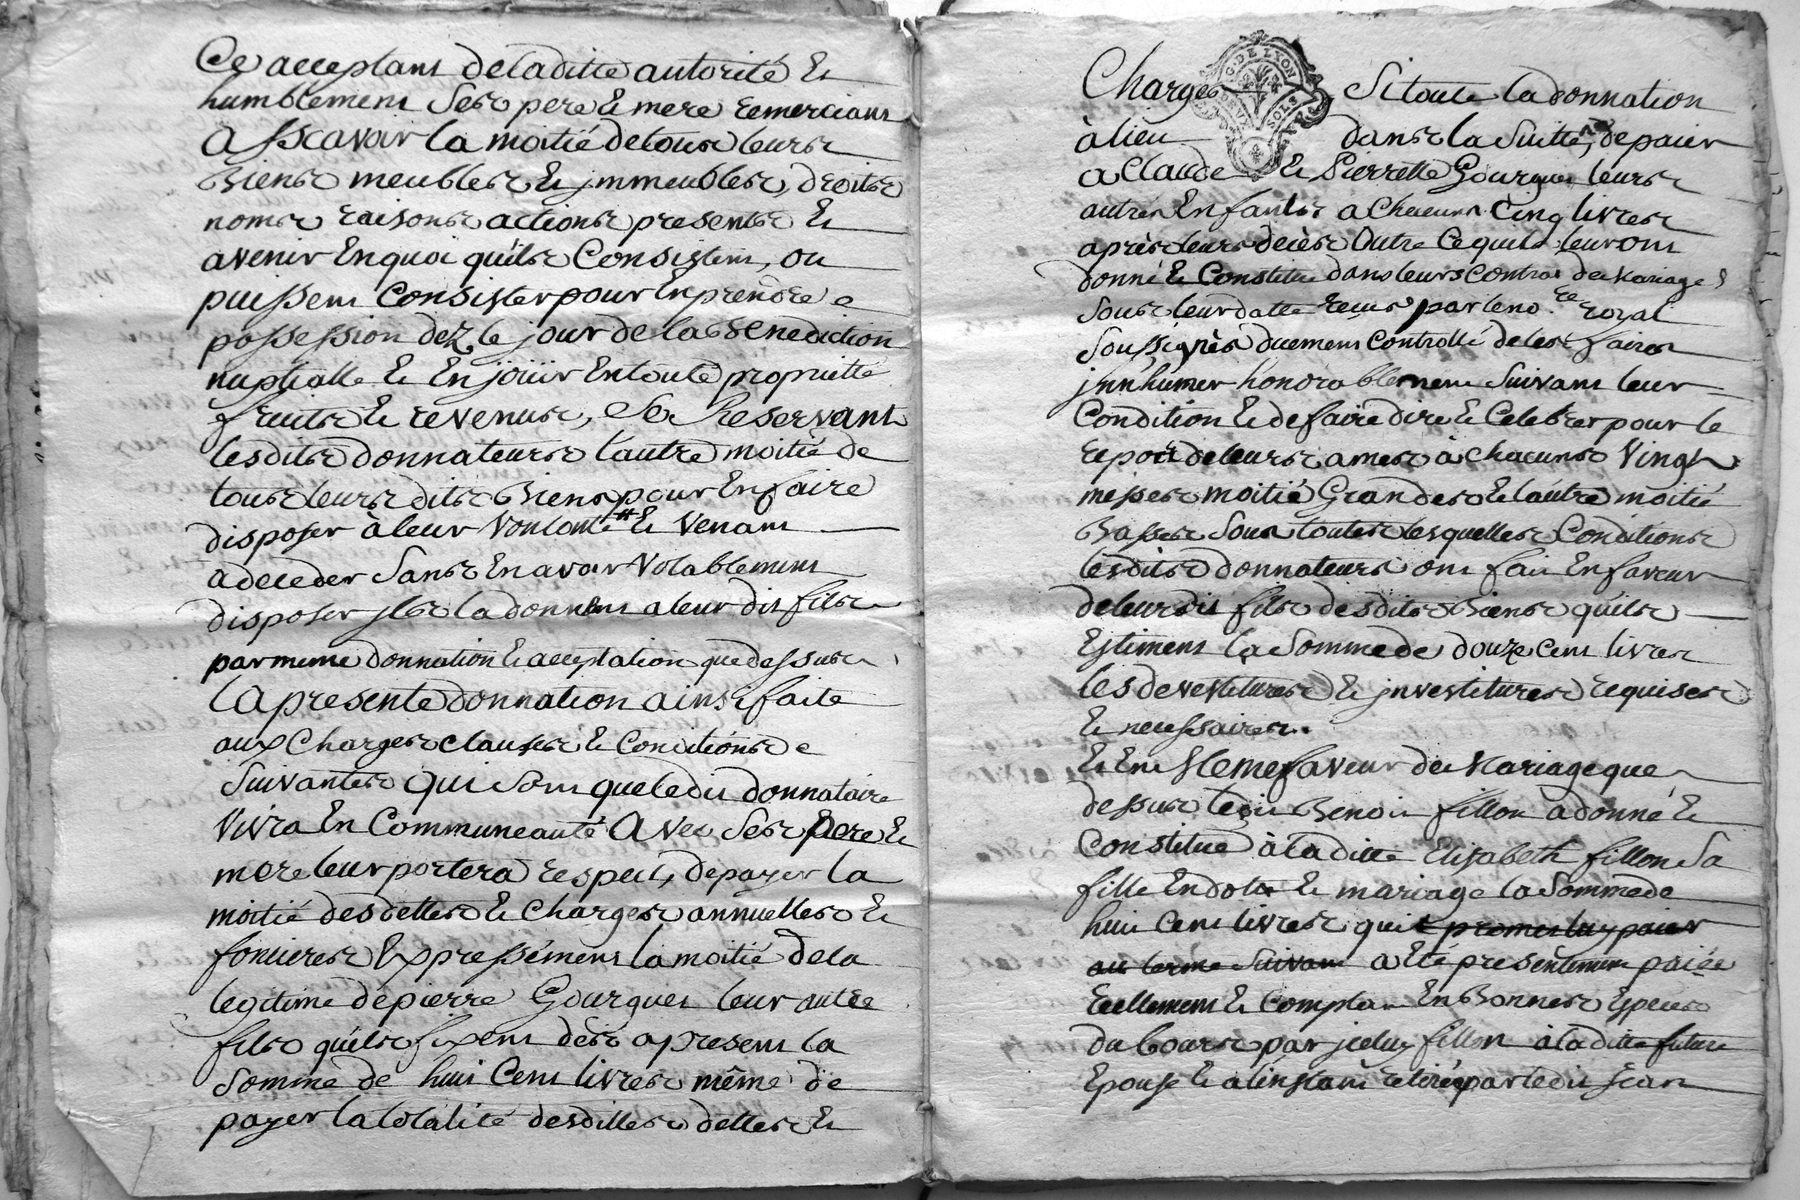 Ce acceptant de la ditte autorité et
humblement ses pere et mere remerciant
a sscavoir la moitié de tous leurs
Biens meubles et jmmeubles, droits
noms raisons actions presents et
avenir En quoi qu'ils Consistent, ou
puissent Consister pour En prendre
possession dez le jour de la Benediction
nuptialle et En joüir En toute proprietté
fruits et revenus, Se Reservant
lesdits donnateurs l'autre moitié de
tous leurs dits Biens pour En faire
disposer à leur vonlonté # et venant
a deceder sans En avoir valablement
disposer jls la donnent a leur dit fils
par meme donnation et acceptation que dessus
la presente donnation ainsi faite
aux Charges clauses et Conditions
Suivantes qui sont que ledit donnataire
vivra En Communeauté avec ses pere et
mere leur portera respect, de payer la
moitié des dettes et charges annuelles et
foncieres Expressément la moitié de la
legitime de pierre Gourgues leur autre
fils qu'ils fixent dès apresent la
somme de huit Cent livres même de
payer la totalité desdittes dettes et
Charges Si toute la donnation
à lieu dans la suitte, de paier
a Claude et Pierrette Gourgues leurs
autres Enfants a Chacuns Cinq livres
après leurs decès Outre Ce quils leur ont
donné et Constitué dans leurs contras de Mariage
Sous leur datte reçus par le no.re royal
Soussignés duement Controllé de les faire
jnnhumer honorablement suivant leur
Condition et de faire dire et Celebrer pour le
repos de leurs ames à chacuns vingt
messes moitié Grandes et l'autre moitié
Basses Sous toutes lesquelles Conditions
lesdits donnateurs ont fait En faveur
de leur dit fils desdits Biens qu'ils
Estiment la Somme de douze cent livres
les devestitures et jnvestitures requises
et necessaires.
Et En Meme faveur de Mariage que
dessus ledit Benoit fillon a donné et
Constitué à la ditte Elizabeth fillon Sa
fille En dote et mariage la Somme de
huit Cent livres qui promet luy paier
au terme suivant a Eté presentement paiée
reellement et Comptant En Bonnes Especes
du Cours par jceluy fillon à la ditte future
Epouse et a linstant retirée par ledit jean
G. DE LYON
SOLS